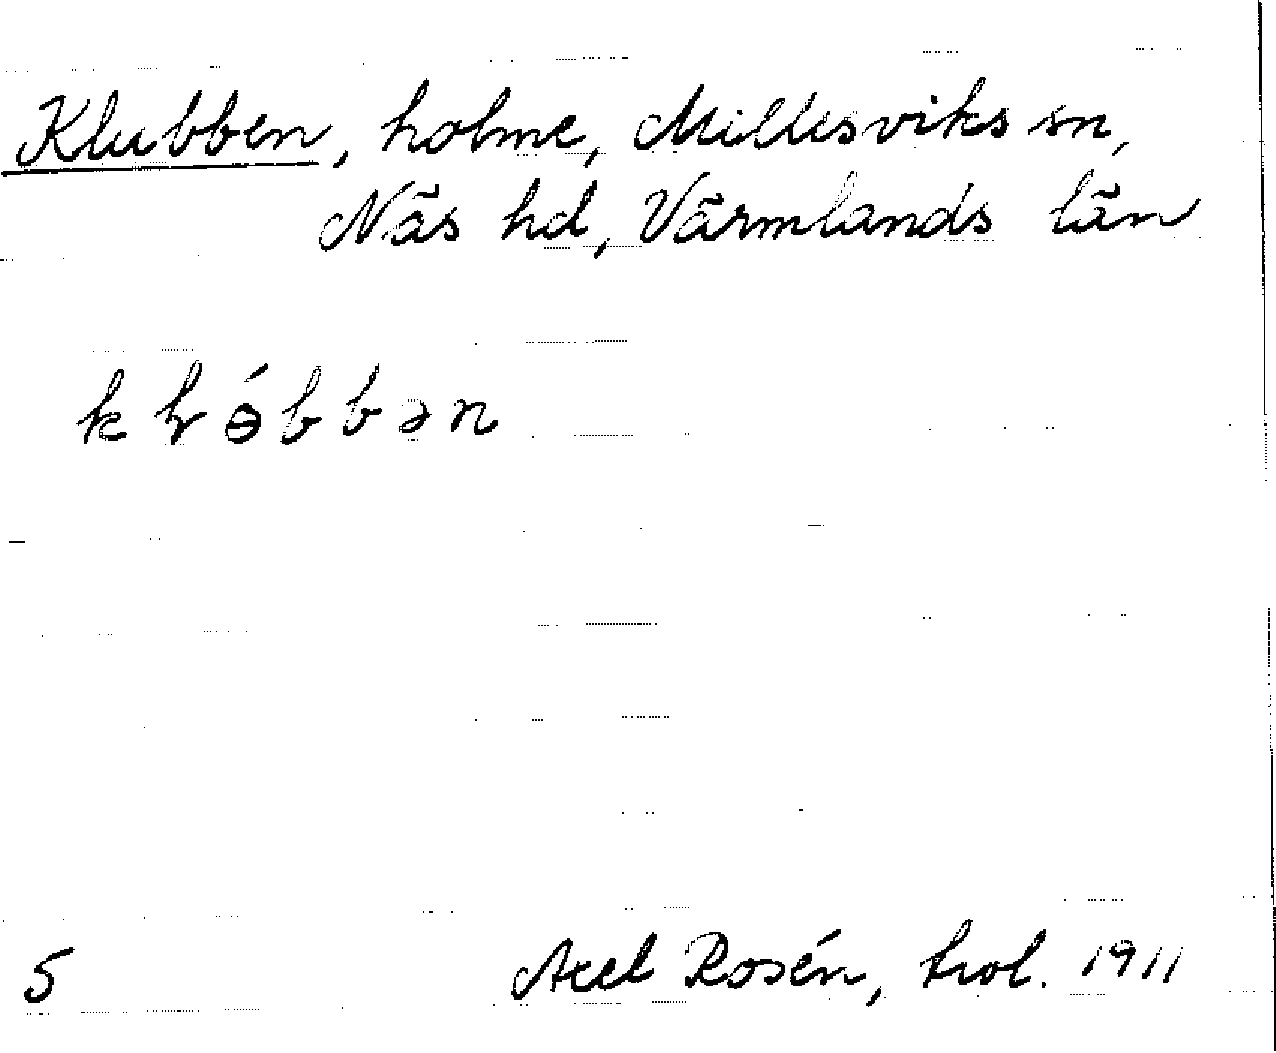 Klubben, holme, Millesviks sn,
Näs hd, Värmlands län
kɽɵ́bbən
5
Axel Rosén, trol. 1911